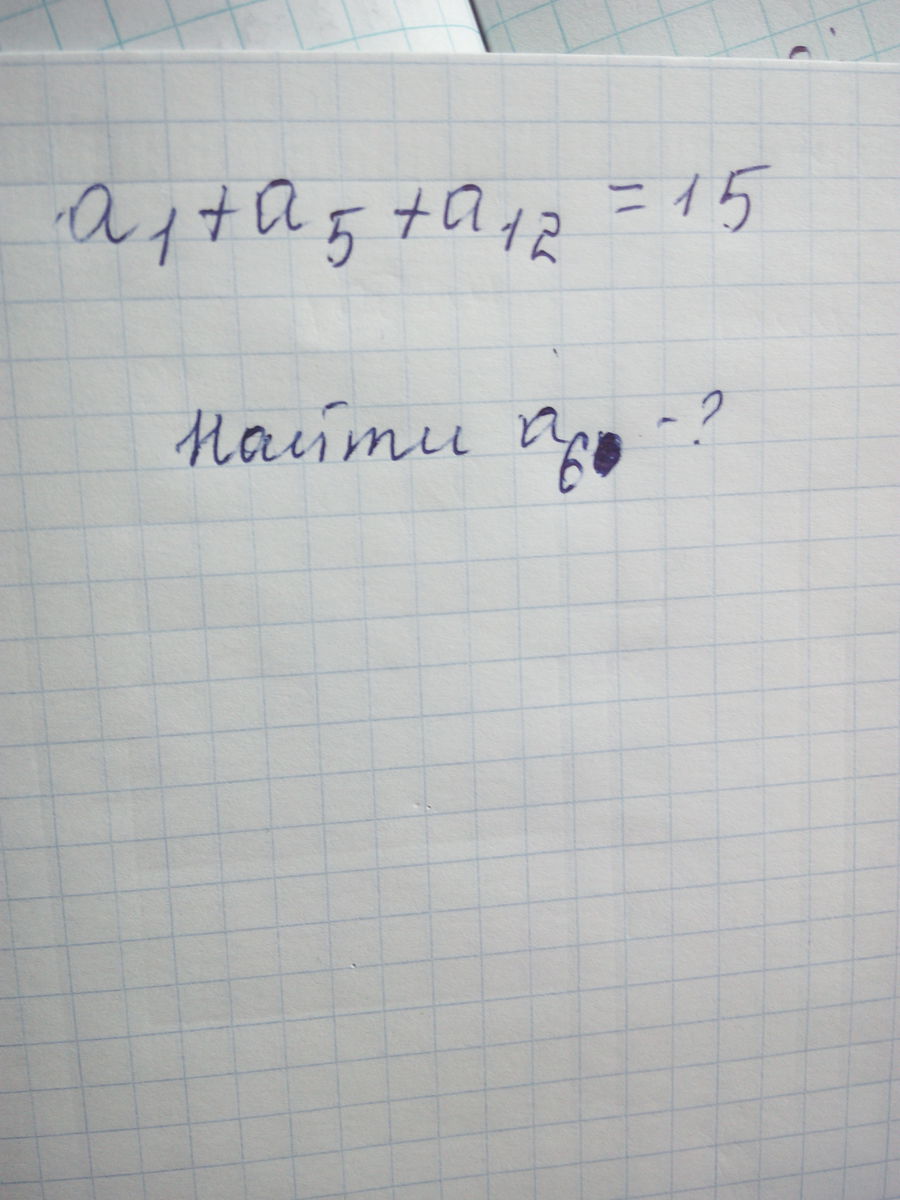 a₁+a₅+a₁₂=15
Найти a₆ -?